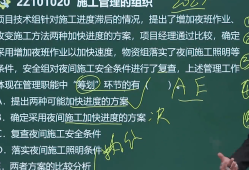 2Z101020 施工管理的组织
2021
项目技术组针对施工进度滞后的情况，提出了增加夜班作业、
改变施工方法两种加快进度的方案，项目经理通过比较，确定
采用增加夜班作业以加快速度，物资组落实了夜间施工照明等
条件，安全组对夜间施工安全条件进行了复查，上述管理工作
体现在管理职能中“筹划”环节的有
AE
A、提出两种可能加快进度的方案
B、确定采用夜间施工加快进度的方案
R
C、复查夜间施工安全条件
D、落实夜间施工照明条件
E、两者方案的比较分析